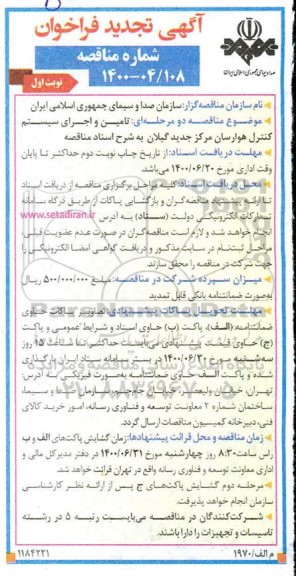 آگهی تجدید فراخوان
شماره مناقصه
۱۴۰۰-۰۴/۱۰۸
نوبت اول
صدا و سیمای جمهوری اسلامی ایران
نام سازمان مناقصه‌گزار: سازمان صدا و سیمای جمهوری اسلامی ایران
موضوع مناقصه دو مرحله‌ای: تامین و اجرای سیستم
کنترل هوارسان مرکز جدید گیلان به شرح اسناد مناقصه
مهلت دریافت اسناد: از تاریخ چاپ نوبت دوم حداکثر تا پایان
وقت اداری مورخ ۱۴۰۰/۰۶/۲۰ می‌باشد.
محل دریافت اسناد: کلیه مراحل برگزاری مناقصه از دریافت اسناد
تا ارائه پیشنهاد مناقصه‌گران و بازگشایی پاکات از طریق درگاه سامانه
تدارکات الکترونیکی دولت (ستاد) به آدرس www.setadiran.ir
انجام خواهد شد و لازم است مناقصه‌گران در صورت عدم عضویت قبلی،
مراحل ثبت‌نام در سایت مذکور و دریافت گواهی امضا الکترونیکی را
جهت شرکت در مناقصه را محقق سازند.
میزان سپرده شرکت در مناقصه: مبلغ ۵۰۰/۰۰۰/۰۰۰ ریال
به‌صورت ضمانتنامه بانکی قابل تمدید
مهلت و محل تحویل پاکات پیشنهادی: تصاویر پاکات حاوی
ضمانتنامه (الف)، پاکت (ب) حاوی اسناد و شرایط عمومی و پاکت
(ج) حاوی قیمت پیشنهادی می‌بایست حداکثر تا ساعت ۱۵ روز
سه‌شنبه مورخ ۱۴۰۰/۰۶/۳۰ در بستر سامانه ستاد ایران بارگذاری
شده و پاکت الف حاوی ضمانتنامه به‌صورت فیزیکی به آدرس:
تهران، خیابان ولیعصر، خیابان جام‌جم، سازمان صدا و سیما،
ساختمان شماره ۲ معاونت توسعه و فناوری رسانه، امور خرید کالای
فنی، دبیرخانه کمیسیون مناقصات ارسال گردد.
زمان مناقصه و محل قرائت پیشنهادها: زمان گشایش پاکت‌های الف و ب
راس ساعت ۸:۳۰ روز چهارشنبه مورخ ۱۴۰۰/۰۶/۳۱ در دفتر مدیرکل مالی و
اداری معاونت توسعه و فناوری رسانه واقع در تهران قرائت خواهد شد.
مرحله دوم گشایش پاکت‌های ج پس از ارائه نظر کارشناسی
سازمان انجام خواهد پذیرفت.
شرکت‌کنندگان در مناقصه می‌بایست رتبه ۵ در رشته
تاسیسات و تجهیزات را دارا باشند.
م الف/۱۹۷۰
۱۱۸۴۲۲۱